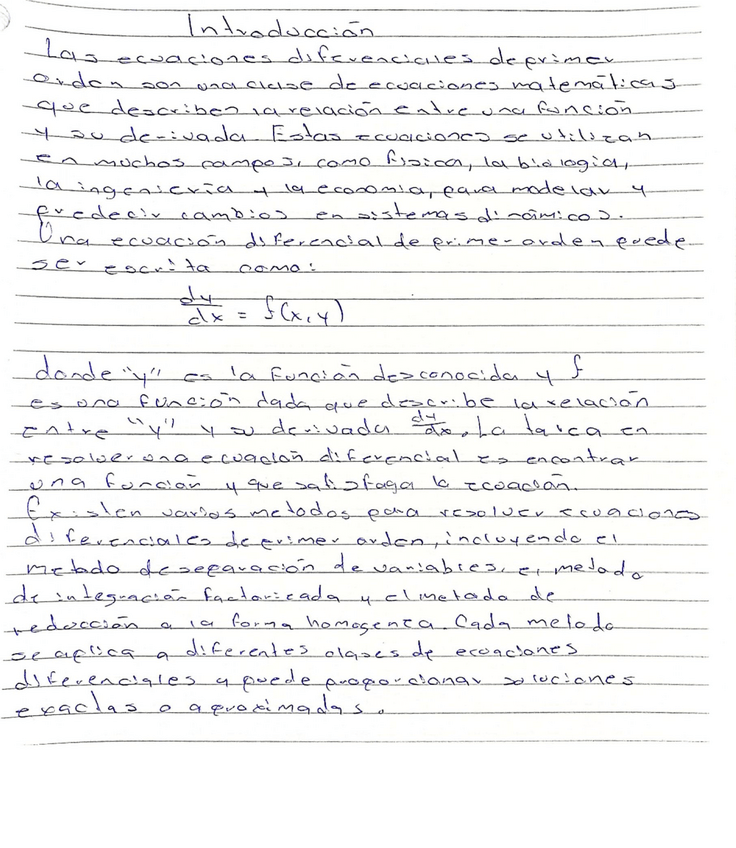 Introducción
Las ecuaciones diferenciales de primer
orden son una clase de ecuaciones matemáticas
que describen la relación entre una función
y su derivada. Estas ecuaciones se utilizan
en muchos campos, como física, la biología,
la ingeniería y la economía, para modelar y
predecir cambios en sistemas dinámicos.
Una ecuación diferencial de primer orden puede
ser escrita como:
dy/dx = f(x,y)
donde "y" es la función desconocida y f
es una función dada que describe la relación
entre "y" y su derivada dy/dx. La tarea en
resolver una ecuación diferencial es encontrar
una función y que satisfaga la ecuación.
Existen varios metodos para resolver ecuaciones
diferenciales de primer orden, incluyendo el
metodo de separación de variables, el metodo
de integración factoricada y el metodo de
reducción a la forma homogenea. Cada metodo
se aplica a diferentes clases de ecuaciones
diferenciales y puede proporcionar soluciones
exactas o aproximadas.